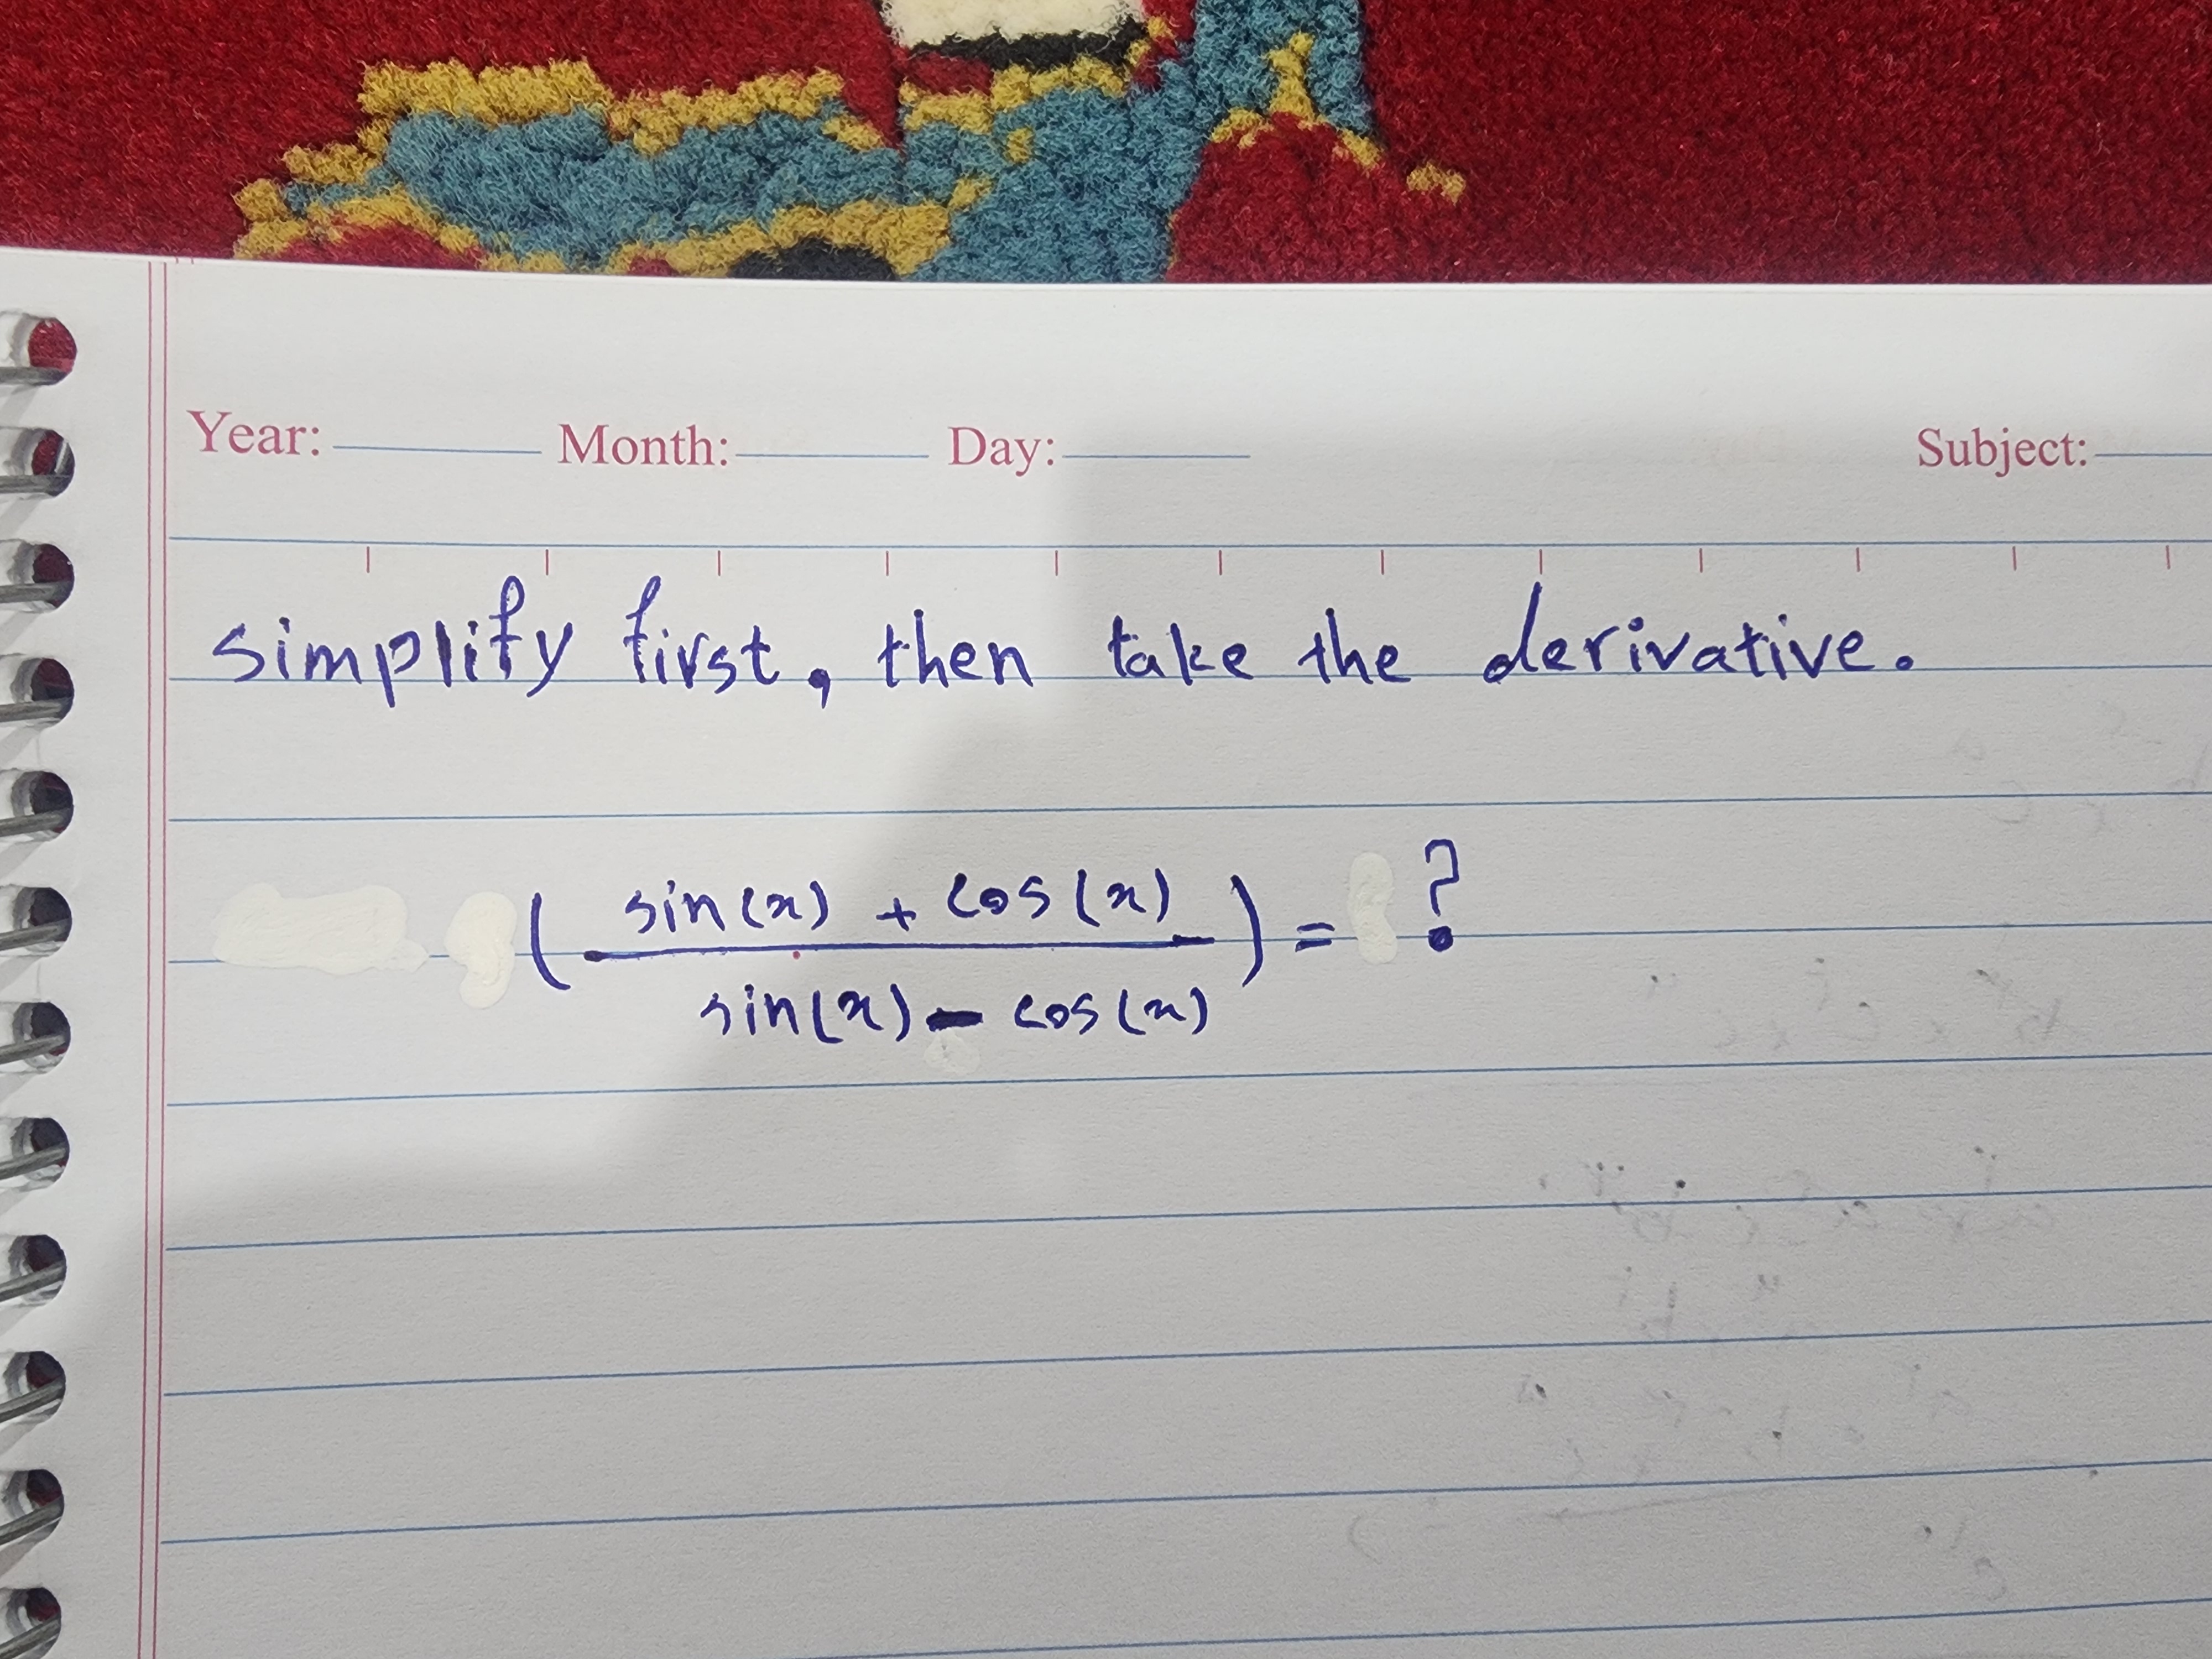 Year: Month: Day: Subject:
simplify first, then take the derivative.
( sin(x) + cos(x) / sin(x) - cos(x) ) = ?